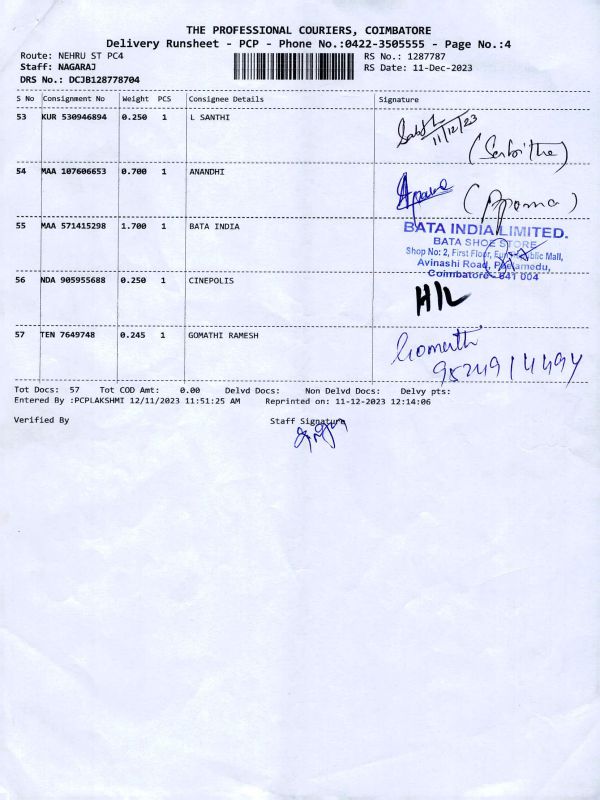 THE PROFESSIONAL COURIERS, COIMBATORE
Delivery Runsheet - PCP - Phone No.:0422-3505555 - Page No.:4
Route: NEHRU ST PC4 RS No.: 1287787
Staff: NAGARAJ RS Date: 11-Dec-2023
DRS No.: DCJB128778704
S No Consignment No Weight PCS Consignee Details Signature
53 KUR 530946894 0.250 1 L SANTHI
11/12/23
54 MAA 107606653 0.700 1 ANANDHI
55 MAA 571415298 1.700 1 BATA INDIA
BATA INDIA LIMITED.
BATA SHOE STORE
Shop No: 2, First Floor, Mall,
Avinashi Road, Peelamedu,
Coimbatore - 641 004
56 NDA 905955688 0.250 1 CINEPOLIS H/L
57 TEN 7649748 0.245 1 GOMATHI RAMESH
Tot Docs: 57 Tot COD Amt: 0.00 Delvd Docs: Non Delvd Docs: Delvy pts:
Entered By :PCPLAKSHMI 12/11/2023 11:51:25 AM Reprinted on: 11-12-2023 12:14:06
Verified By Staff Signature